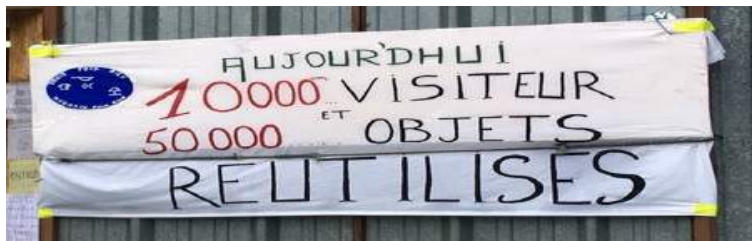 AUJOURD'HUI
10000 VISITEUR
ET
50 000 OBJETS
REUTILISES